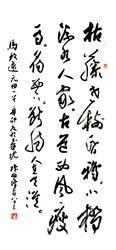 枯藤老树昏鸦小桥
流水人家古道西风瘦
马夕阳西下断肠人在天涯
马致远元曲一首